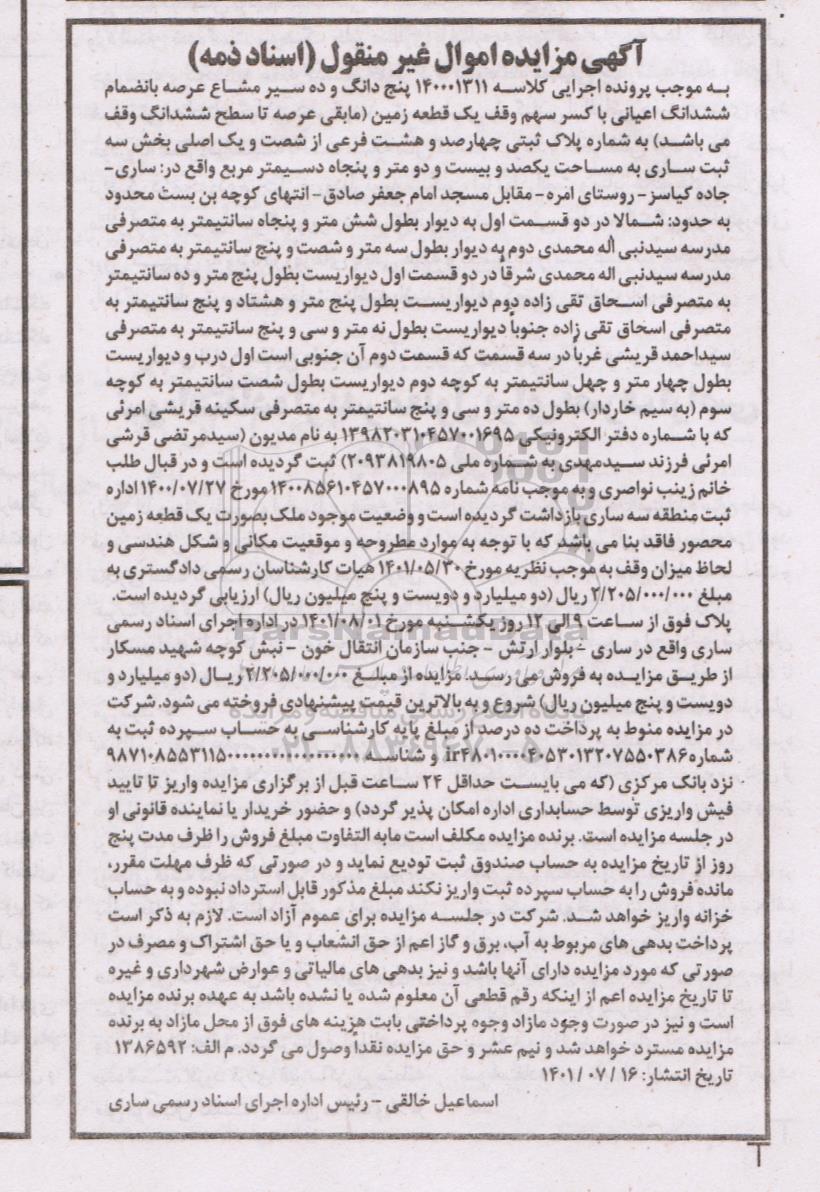 آگهی مزایده اموال غیر منقول (اسناد ذمه)
به موجب پرونده اجرایی کلاسه ۱۴۰۰۰۱۳۱۱ پنج دانگ و ده سیر مشاع عرصه بانضمام
ششدانگ اعیانی با کسر سهم وقف یک قطعه زمین (مابقی عرصه تا سطح ششدانگ وقف
می باشد) به شماره پلاک ثبتی چهارصد و هشت فرعی از شصت و یک اصلی بخش سه
ثبت ساری به مساحت یکصد و بیست و دو متر و پنجاه دسیمتر مربع واقع در: ساری-
جاده کیاسر- روستای امره- مقابل مسجد امام جعفر صادق- انتهای کوچه بن بست محدود
به حدود: شمالا در دو قسمت اول به دیوار بطول شش متر و پنجاه سانتیمتر به متصرفی
مدرسه سیدنبی اله محمدی دوم به دیوار بطول سه متر و شصت و پنج سانتیمتر به متصرفی
مدرسه سیدنبی اله محمدی شرقاً در دو قسمت اول دیواریست بطول پنج متر و ده سانتیمتر
به متصرفی اسحاق تقی زاده دوم دیواریست بطول پنج متر و هشتاد و پنج سانتیمتر به
متصرفی اسحاق تقی زاده جنوباً دیواریست بطول نه متر و سی و پنج سانتیمتر به متصرفی
سیداحمد قریشی غرباً در سه قسمت که قسمت دوم آن جنوبی است اول درب و دیواریست
بطول چهار متر و چهل سانتیمتر به کوچه دوم دیواریست بطول شصت سانتیمتر به کوچه
سوم (به سیم خاردار) بطول ده متر و سی و پنج سانتیمتر به متصرفی سکینه قریشی امرئی
که با شماره دفتر الکترونیکی ۱۳۹۸۲۰۳۱۰۴۵۷۰۰۱۶۹۵ به نام مدیون (سیدمرتضی قرشی
امرئی فرزند سیدمهدی به شماره ملی ۲۰۹۳۸۱۹۸۰۵) ثبت گردیده است و در قبال طلب
خانم زینب نواصری و به موجب نامه شماره ۱۴۰۰۸۵۶۱۰۴۵۷۰۰۰۸۹۵ مورخ ۱۴۰۰/۰۷/۲۷ اداره
ثبت منطقه سه ساری بازداشت گردیده است و وضعیت موجود ملک بصورت یک قطعه زمین
محصور فاقد بنا می باشد که با توجه به موارد مطروحه و موقعیت مکانی و شکل هندسی و
لحاظ میزان وقف به موجب نظریه مورخ ۱۴۰۱/۰۵/۳۰ هیات کارشناسان رسمی دادگستری به
مبلغ ۲/۲۰۵/۰۰۰/۰۰۰ ریال (دو میلیارد و دویست و پنج میلیون ریال) ارزیابی گردیده است.
پلاک فوق از ساعت ۹ الی ۱۲ روز یکشنبه مورخ ۱۴۰۱/۰۸/۰۱ در اداره اجرای اسناد رسمی
ساری واقع در ساری - بلوار ارتش - جنب سازمان انتقال خون - نبش کوچه شهید مسکار
از طریق مزایده به فروش می رسد. مزایده از مبلغ ۲/۲۰۵/۰۰۰/۰۰۰ ریال (دو میلیارد و
دویست و پنج میلیون ریال) شروع و به بالاترین قیمت پیشنهادی فروخته می شود. شرکت
در مزایده منوط به پرداخت ده درصد از مبلغ پایه کارشناسی به حساب سپرده ثبت به
و شناسه
نزد بانک مرکزی (که می بایست حداقل ۲۴ ساعت قبل از برگزاری مزایده واریز تا تایید
فیش واریزی توسط حسابداری اداره امکان پذیر گردد) و حضور خریدار یا نماینده قانونی او
در جلسه مزایده است. برنده مزایده مکلف است مابه التفاوت مبلغ فروش را ظرف مدت پنج
روز از تاریخ مزایده به حساب صندوق ثبت تودیع نماید و در صورتی که ظرف مهلت مقرر،
مانده فروش را به حساب سپرده ثبت واریز نکند مبلغ مذکور قابل استرداد نبوده و به حساب
خزانه واریز خواهد شد. شرکت در جلسه مزایده برای عموم آزاد است. لازم به ذکر است
پرداخت بدهی های مربوط به آب، برق و گاز اعم از حق انشعاب و یا حق اشتراک و مصرف در
صورتی که مورد مزایده دارای آنها باشد و نیز بدهی های مالیاتی و عوارض شهرداری و غیره
تا تاریخ مزایده اعم از اینکه رقم قطعی آن معلوم شده یا نشده باشد به عهده برنده مزایده
است و نیز در صورت وجود مازاد وجوه پرداختی بابت هزینه های فوق از محل مازاد به برنده
مزایده مسترد خواهد شد و نیم عشر و حق مزایده نقداً وصول می گردد. م الف: ۱۳۸۶۵۹۲
تاریخ انتشار: ۱۶ / ۰۷ / ۱۴۰۱
اسماعیل خالقی - رئیس اداره اجرای اسناد رسمی ساری
ParsNamadData